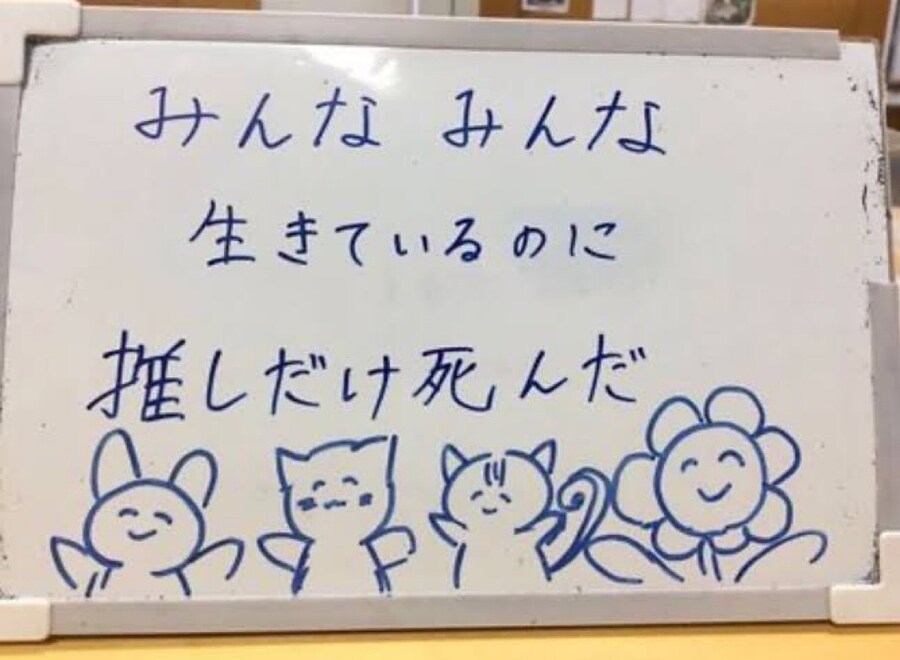 みんな みんな
生きているのに
推しだけ死んだ